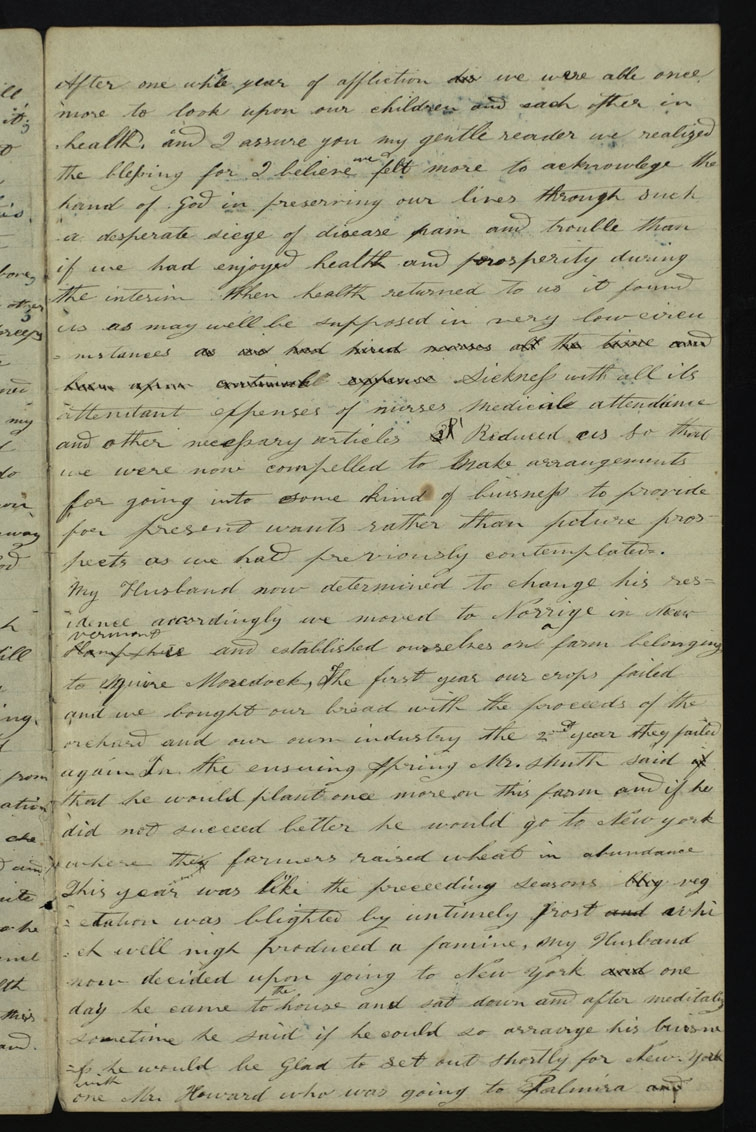 After one whole year of affliction we were able once
more to look upon our children and each other in
health, and I assure you my gentle reader we realized
the blessing for I believe we felt more to acknowlege the
hand of God in preserving our lives through such
a desperate siege of disease pain and trouble than
if we had enjoyed health and prosperity during
the interim When health returned to us it found
us as may well be supposed in very low circu
=mstances as we had hired nurses all the time and
been upon continual expense Sickness with all its
attendant expenses of nurses medical attendance
and other necessary articles Reduced us so that
we were now compelled to make arrangements
for going into some kind of buisness to provide
for present wants rather than future pros=
pects as we had previously contemplated.
My Husband now determined to change his res=
idence accordingly we moved to Norrige in New
vermont
Hampshire and established ourselves on a farm belonging
to squire Moredock, The first year our crops failed
and we bought our bread with the proceeds of the
orchard and our own industry the 2nd year they failed
again In the ensuing Spring Mr. Smith said if
that he would plant once more on this farm and if he
did not succeed better he would go to New york
where they farmers raised wheat in abundance
This year was like the preceeding seasons they veg
=etation was blighted by untimely frost and whi
=ch well nigh produced a famine, my Husband
now decided upon going to New York and one
day he came to the house and sat down and after meditating
sometime he said if he could so arrange his buisne
=ss he would be Glad to set out shortly for New-York
with
one Mr. Howard who was going to Palmira and